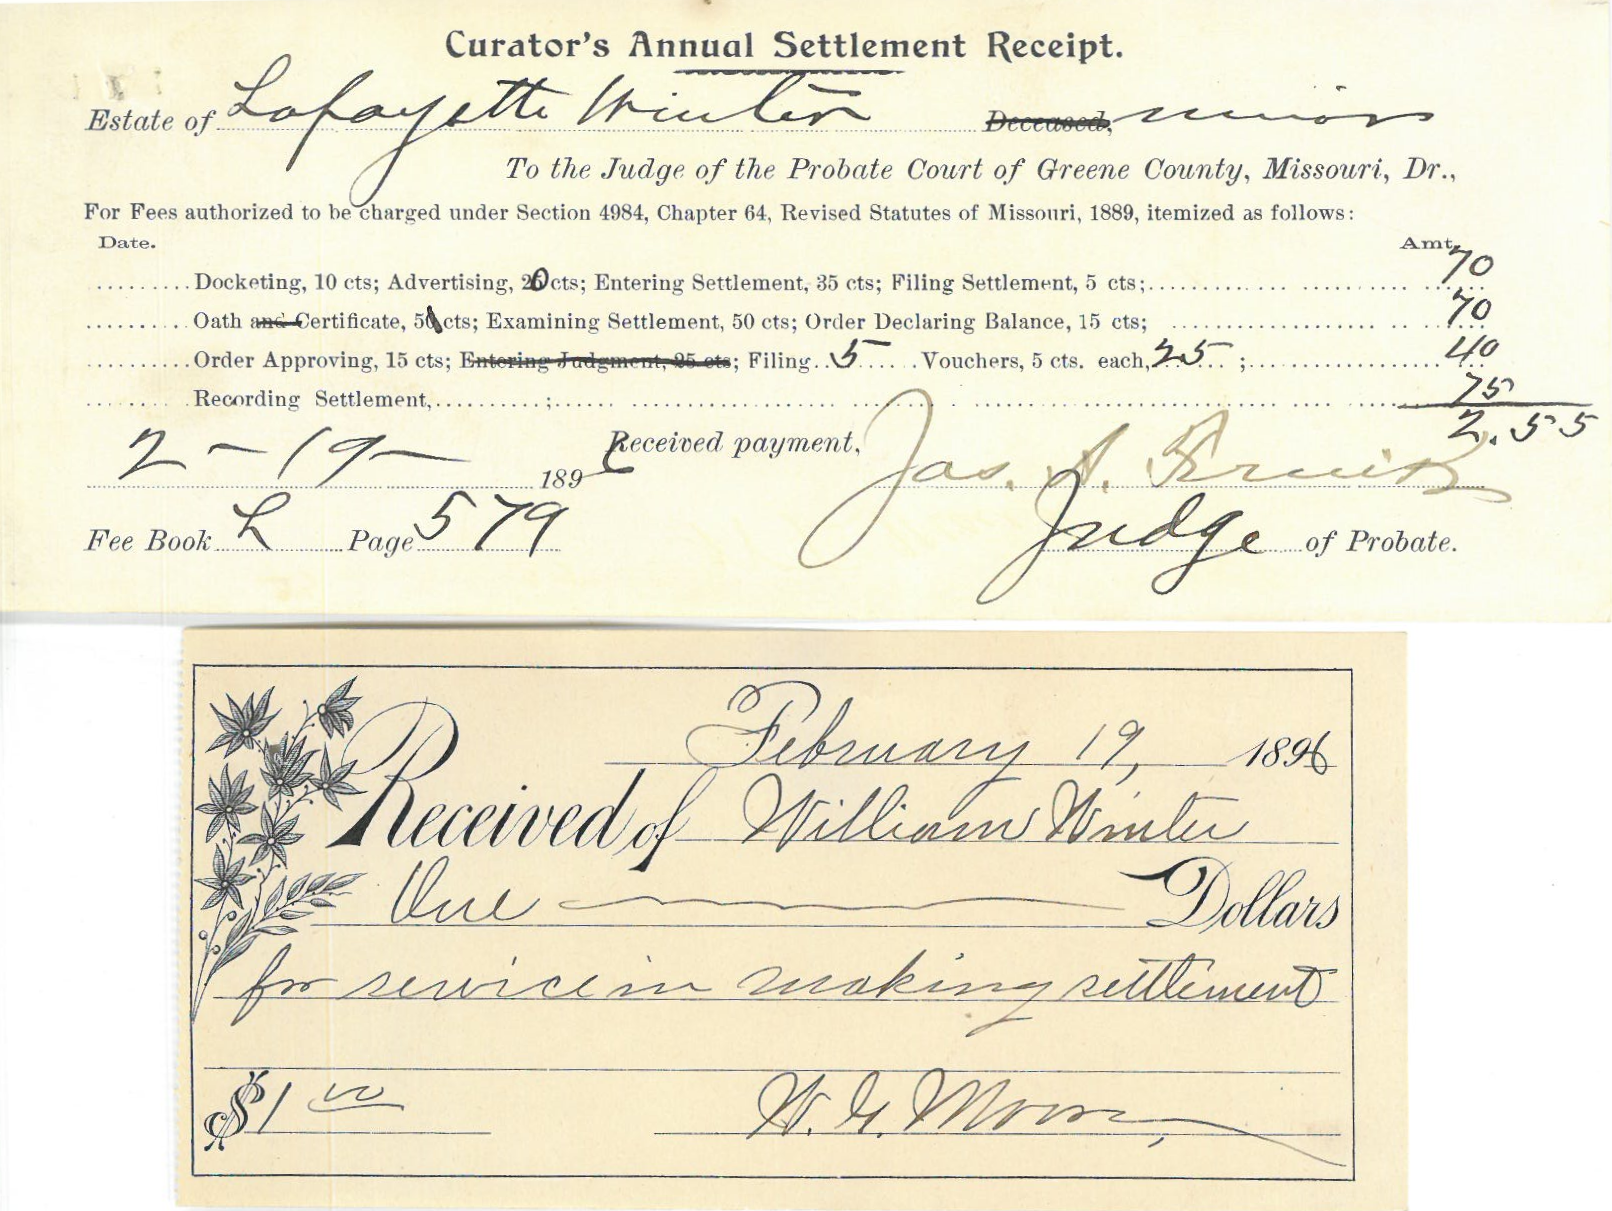 Curator's Annual Settlement Receipt.
Estate of Lafayette Winter Deceased, minor
To the Judge of the Probate Court of Greene County, Missouri, Dr.,
For Fees authorized to be charged under Section 4984, Chapter 64, Revised Statutes of Missouri, 1889, itemized as follows:
Date. Amt.
Docketing, 10 cts; Advertising, 20 cts; Entering Settlement, 35 cts; Filing Settlement, 5 cts; 70
Oath and Certificate, 5 cts; Examining Settlement, 50 cts; Order Declaring Balance, 15 cts; 70
Order Approving, 15 cts; Entering Judgment, 25 cts; Filing 5 Vouchers, 5 cts. each, 25 ; 40
Recording Settlement, ; 75
2.55
2-19- 1896 Received payment, Jas. A.
Fee Book L Page 579 Judge of Probate.
February 19, 1896
Received of William Winter
One Dollars
for service in making settlement
$1 00 W. G. Moore